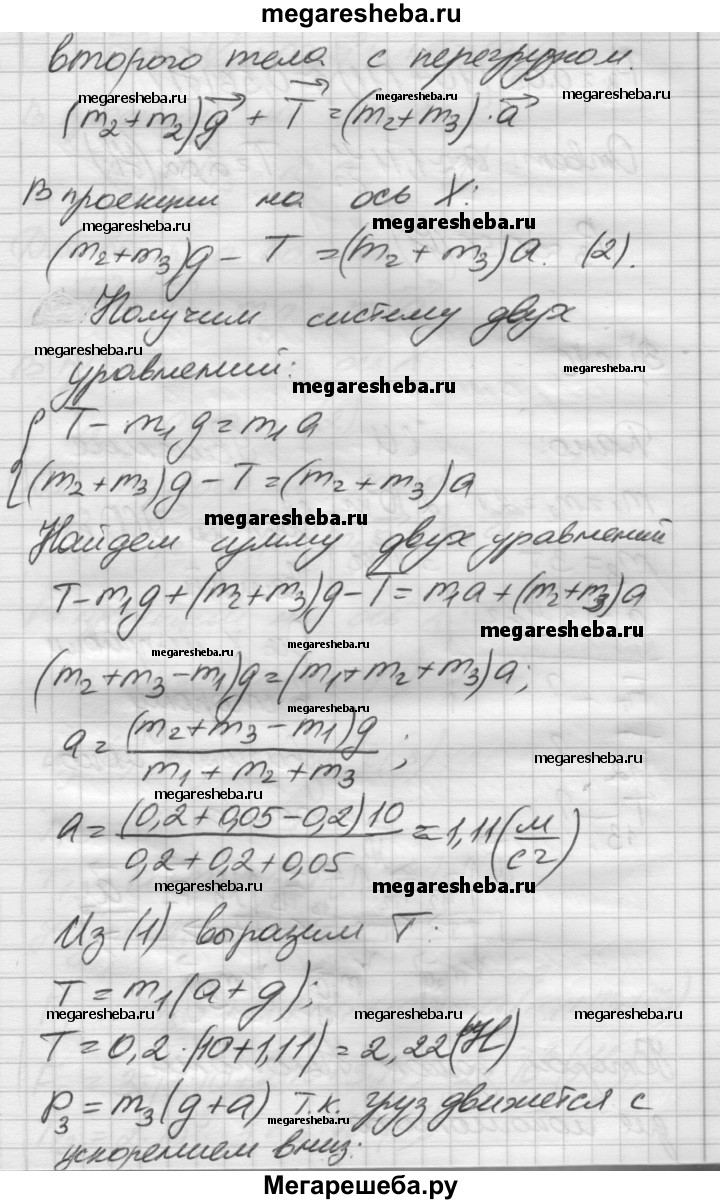 megaresheba.ru
второго тела с перегрузком.
megaresheba.ru megaresheba.ru megaresheba.ru
(m₂+m₂)g⃗ + T⃗ =(m₂+m₃)·a⃗
В проекции на ось X:
megaresheba.ru megaresheba.ru
(m₂+m₃)g – T =(m₂+m₃)a. (2).
Получим систему двух
megaresheba.ru megaresheba.ru
уравнений:
megaresheba.ru
{ T – m₁g=m₁a
(m₂+m₃)g – T=(m₂+m₃)a
megaresheba.ru
Найдем сумму двух уравнений
T–m₁g+(m₂+m₃)g–T=m₁a+(m₂+m₃)a
megaresheba.ru
megaresheba.ru megaresheba.ru
(m₂+m₃–m₁)g=(m₁+m₂+m₃)a;
a= (m₂+m₃–m₁)g / m₁+m₂+m₃ ;
megaresheba.ru
megaresheba.ru
a= (0,2+0,05–0,2)10 / 0,2+0,2+0,05 =1,11(м/с2)
megaresheba.ru megaresheba.ru
Из (1) выразим T:
T=m₁(a+g);
megaresheba.ru megaresheba.ru megaresheba.ru
T=0,2·(10+1,11)=2,22(Н)
P₃=m₃(g+a) т.к. груз движется с
ускорением вниз:
Мегарешеба.ру